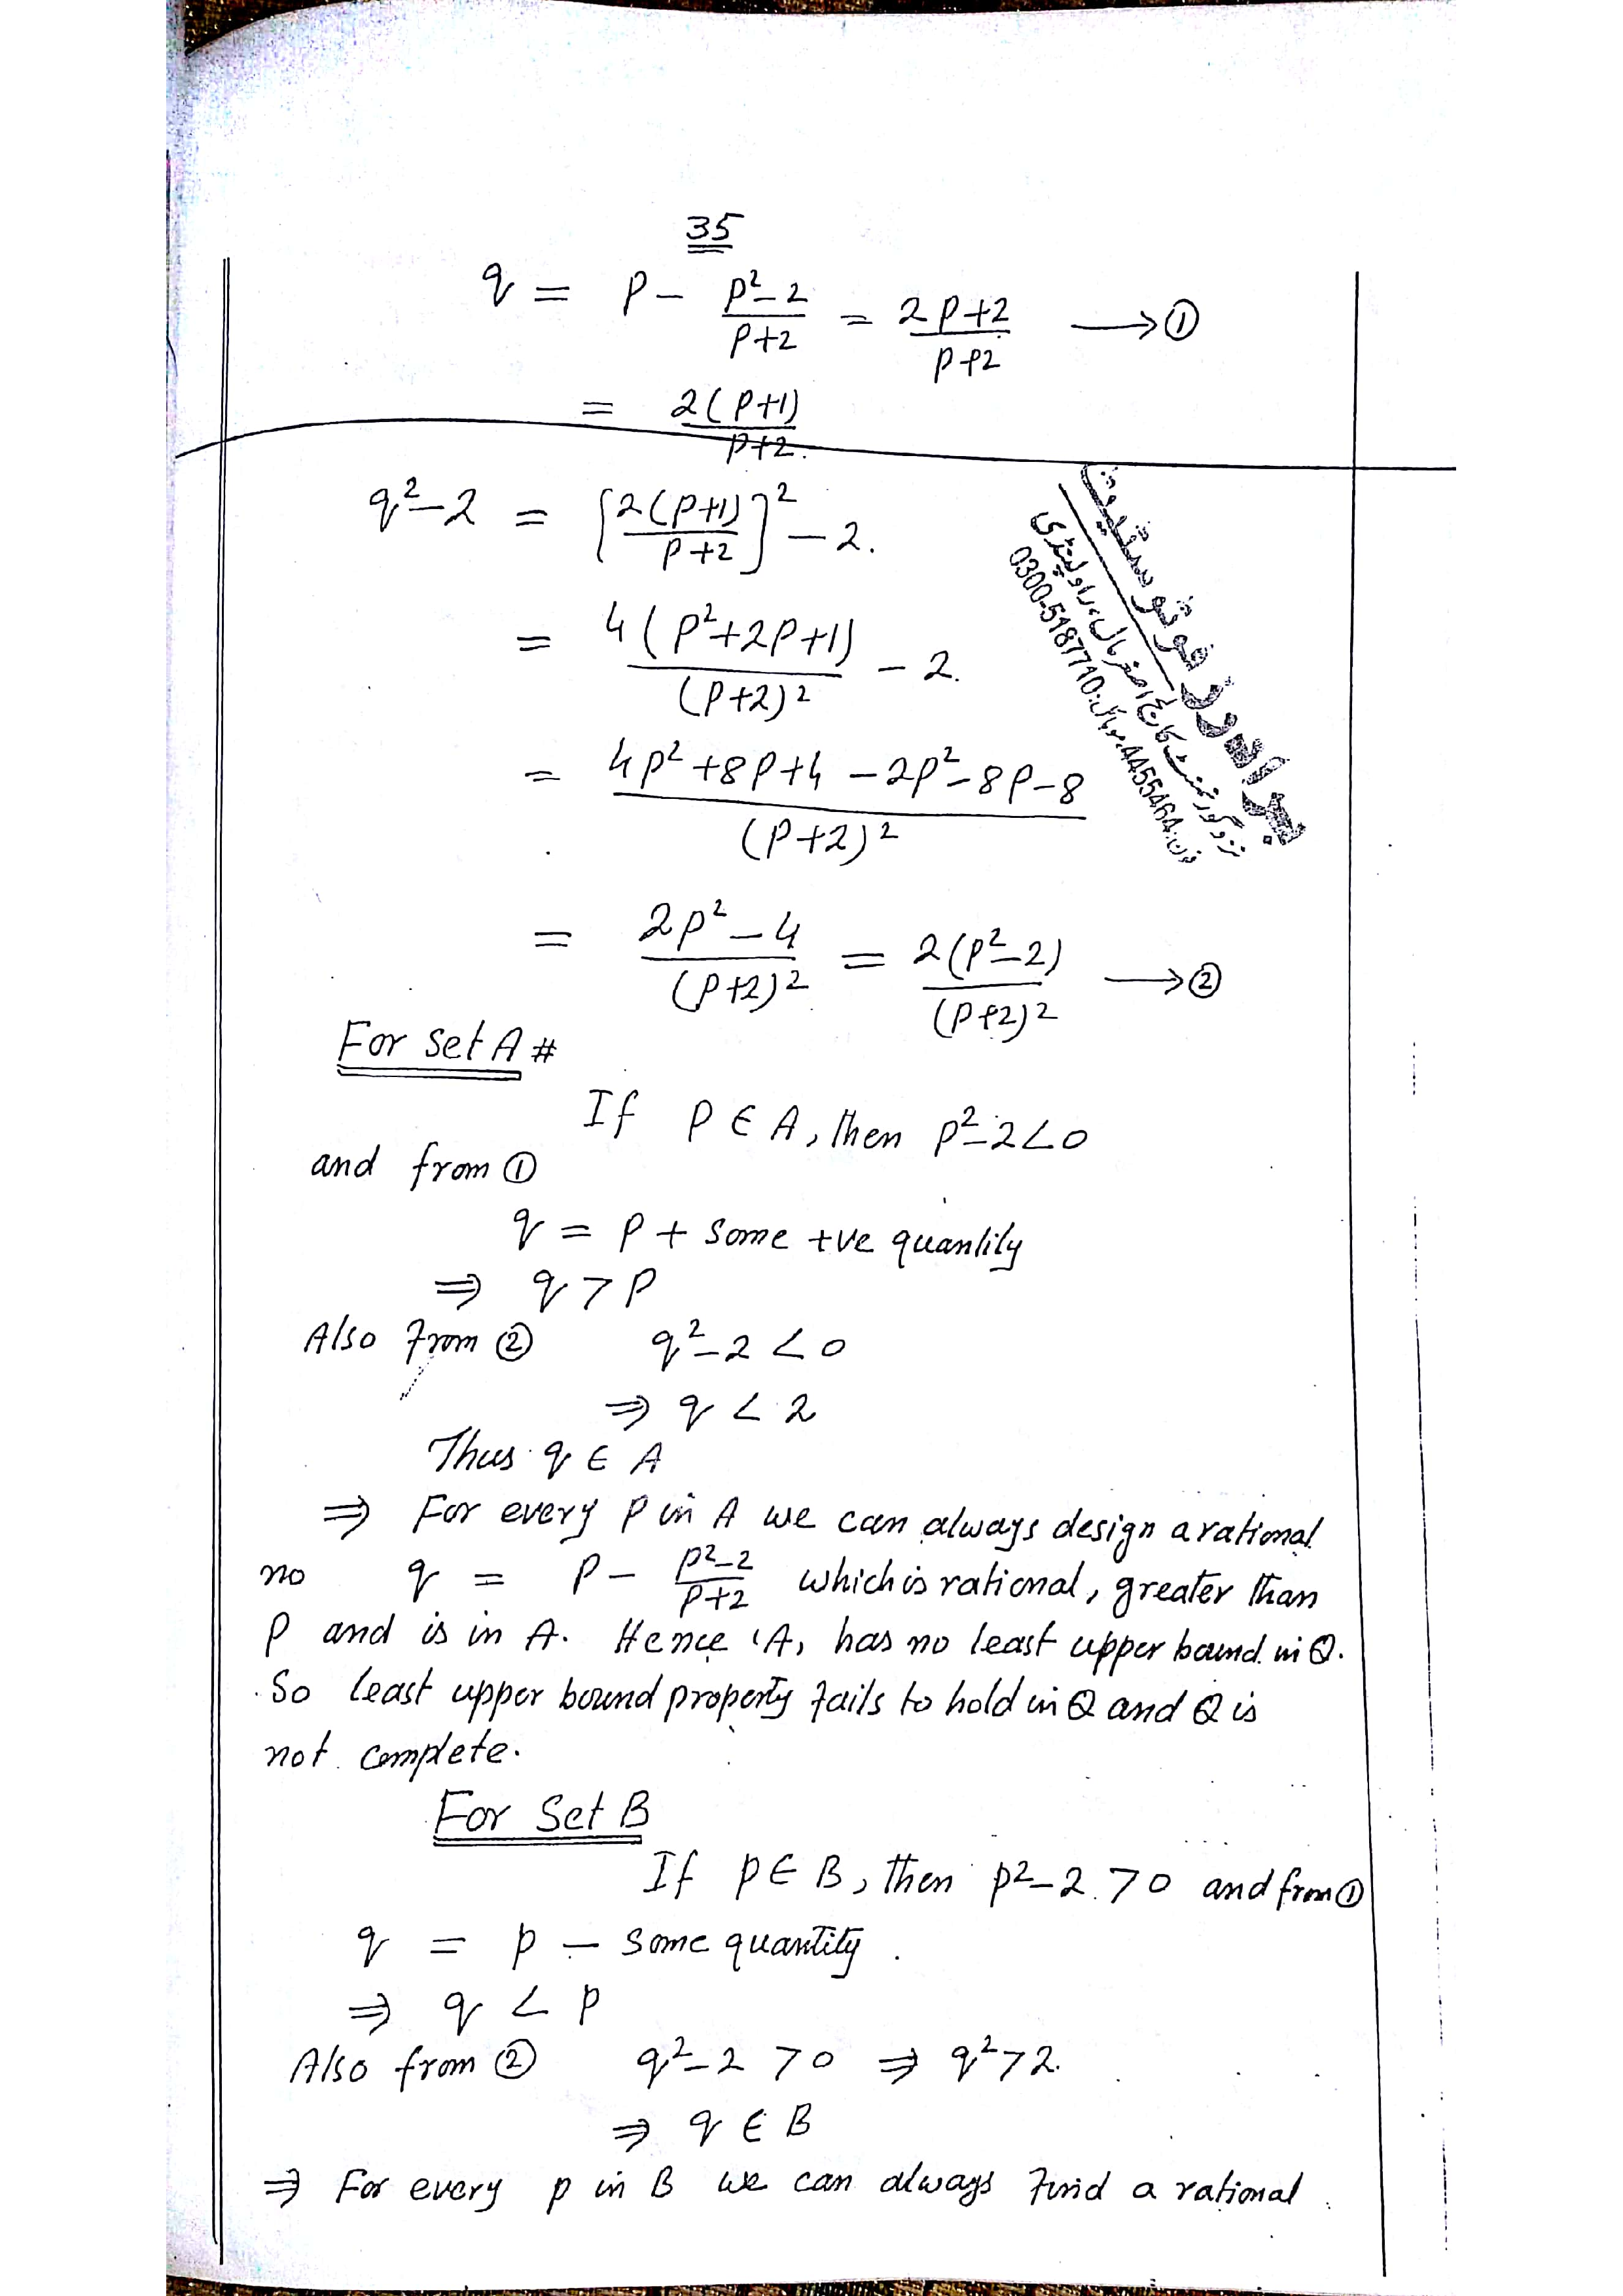 35
q = p - (p²-2)/(p+2) = (2p+2)/(p+2) → ①
= 2(p+1)/(p+2).
q²-2 = [2(p+1)/(p+2)]² - 2.
= 4(p²+2p+1)/(p+2)² - 2.
= (4p²+8p+4-2p²-8p-8)/(p+2)²
= (2p²-4)/(p+2)² = 2(p²-2)/(p+2)² → ②
برادرز فوٹو سٹیٹ
نزد گورنمنٹ کالج اصغر مال، راولپنڈی
فون: 4455464، موبائل: 0300-5187740
For Set A #
If P ∈ A, then p²-2<0
and from ①
q = p + Some +ve quantity
⇒ q > p
Also from ② q²-2 < 0
⇒ q < 2
Thus q ∈ A
⇒ For every p in A we can always design a rational
no q = p - (p²-2)/(p+2) which is rational, greater than
p and is in A. Hence 'A, has no least upper bound in Q.
So least upper bound property fails to hold in Q and Q is
not complete.
For Set B
If p ∈ B, then p²-2 > 0 and from ①
q = p - some quantity.
⇒ q < p
Also from ② q²-2 > 0 ⇒ q²>2.
⇒ q ∈ B
⇒ For every p in B we can always find a rational